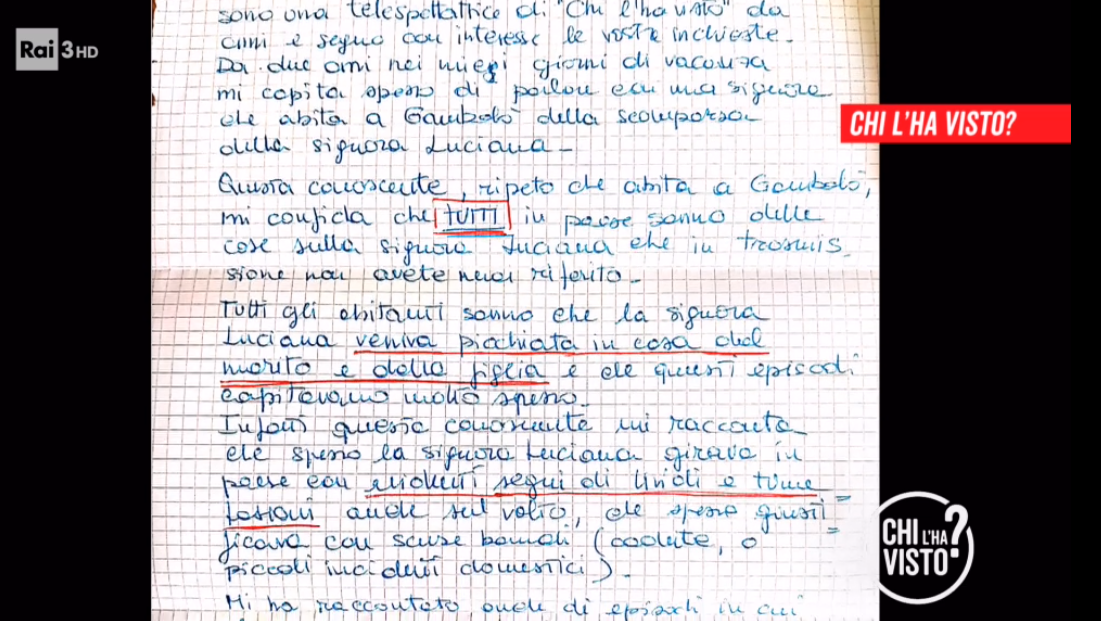 Rai 3HD
CHI L'HA VISTO?
sono una telespettatrice di "Chi l'ha visto" da
anni e seguo con interesse le vostre inchieste.
Da due anni nei miei giorni di vacanza
mi capita spesso di parlare con una signora
che abita a Gambolò della scomparsa
della signora Luciana.
Questa conoscente, ripeto che abita a Gambolò,
mi confida che TUTTI in paese sanno delle
cose sulla signora Luciana che in trasmis_
sione non avete mai riferito.
Tutti gli abitanti sanno che la signora
Luciana veniva picchiata in casa dal
marito e dalla figlia e che questi episodi
capitavano molto spesso.
Infatti questa conoscente mi racconta
che spesso la signora Luciana girava in
paese con evidenti segni di lividi e tume
fazioni anche sul volto, che spesso giusti=
ficava con scuse banali (cadute, o
piccoli incidenti domestici).
Mi ha raccontato anche di episodi in cui
CHI L'HA VISTO?